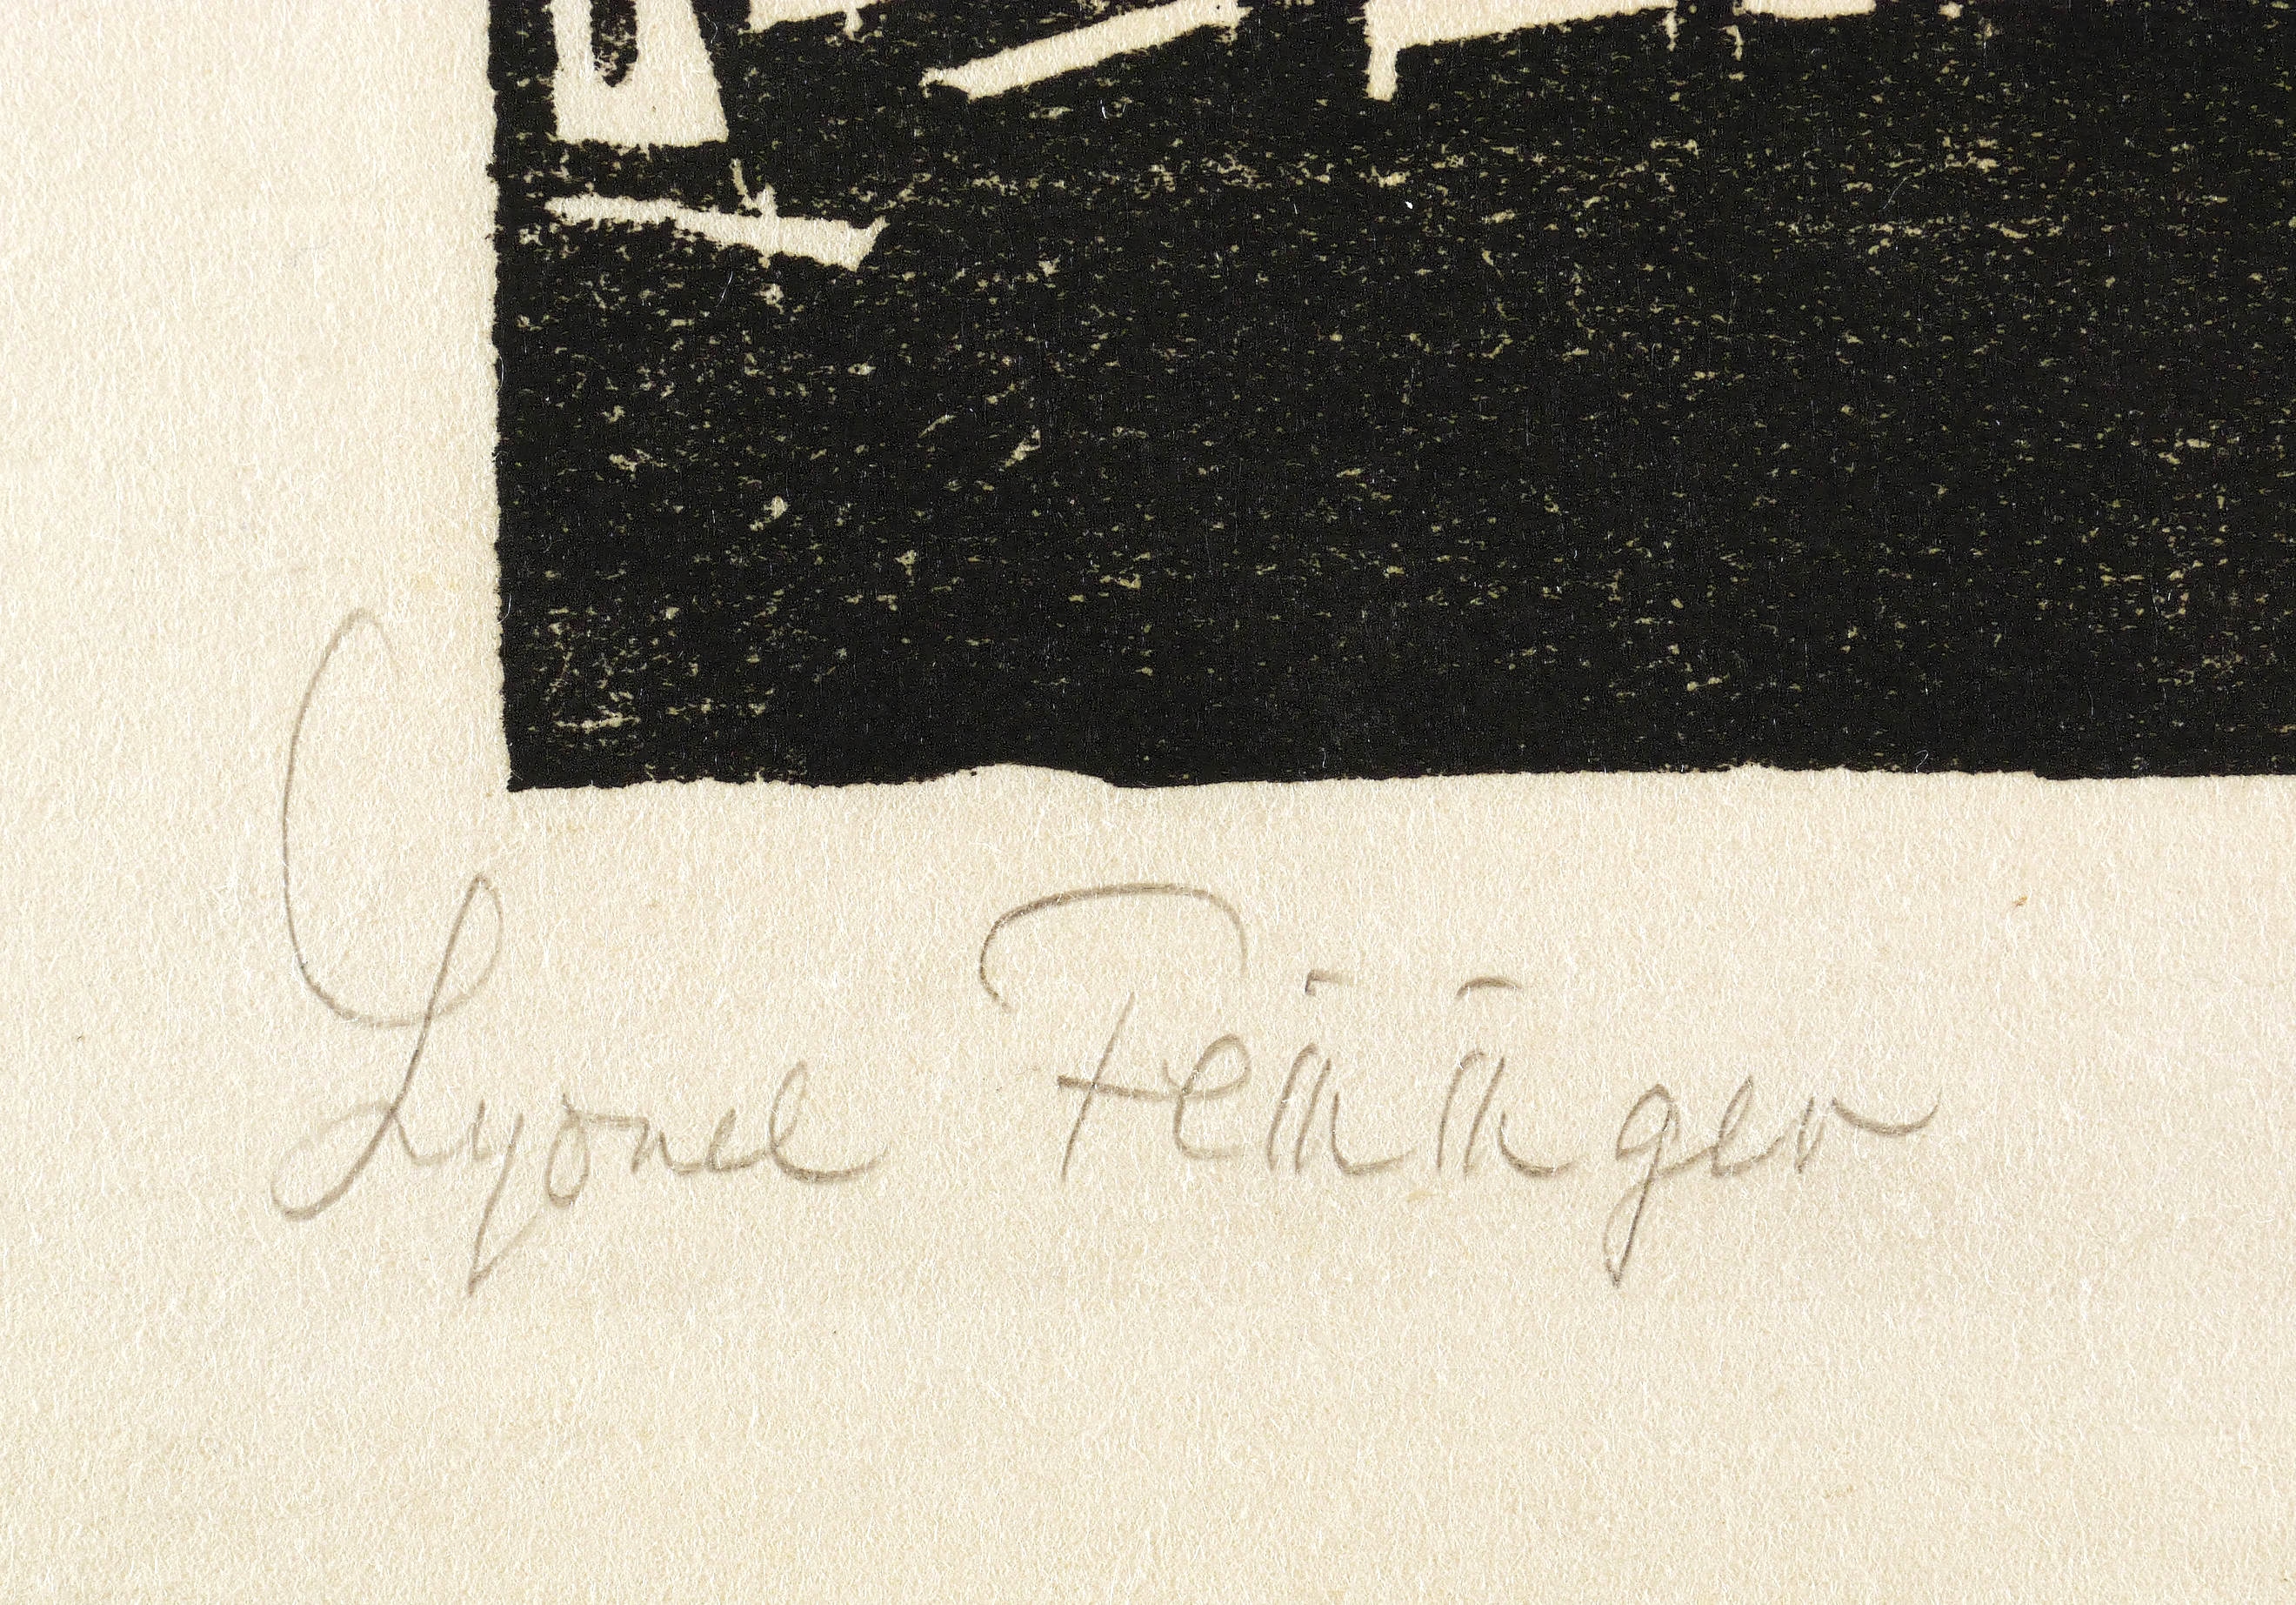 Lyonel Feininger